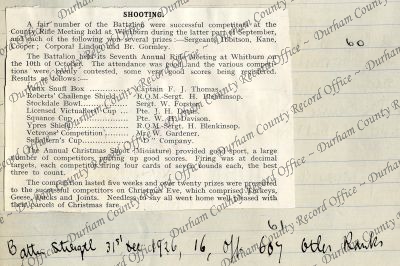 SHOOTING.
A fair number of the Battalion were successful competitors at the
County Rifle Meeting held at Whitburn during the latter part of September,
and each of the following won several prizes:—Sergeants Ibbitson, Kane,
Cooper; Corporal Lindon and Br. Gormley.
The Battalion held its Seventh Annual Rifle Meeting at Whitburn on
the 10th of October. The attendance was good, and the various competi-
tions were keenly contested, some very good scores being registered.
Results as follows:—
Vaux Snuff Box Captain F. J. Thomas.
Roberts' Challenge Shield R.Q.M.-Sergt. H. Blenkinsop.
Stockdale Bowl Sergt. W. Forster.
Licensed Victuallers' Cup Pte. J. H. Dent.
Squance Cup Pte. W. H. Davison.
Ypres Shield R.Q.M.-Sergt. H. Blenkinsop.
Veterans' Competition Mr. W. Gardener.
"D" Company.
The Annual Christmas Shoot (Miniature) provided good sport, a large
number of competitors putting up good scores. Firing was at decimal
targets, each competitor firing four cards of seven rounds each, the best
three to count.
The competition lasted five weeks and over twenty prizes were presented
to the successful competitors on Christmas Eve, which comprised Turkeys,
Geese, Ducks and Joints. Needless to say all went home well pleased with
their parcels of Christmas fare.
60
61
Battn Strength 31st Dec 1926, 16, Offs 607 Other Ranks
Durham County Record Office ~ Durham County Record Office ~ Durham County Record Office